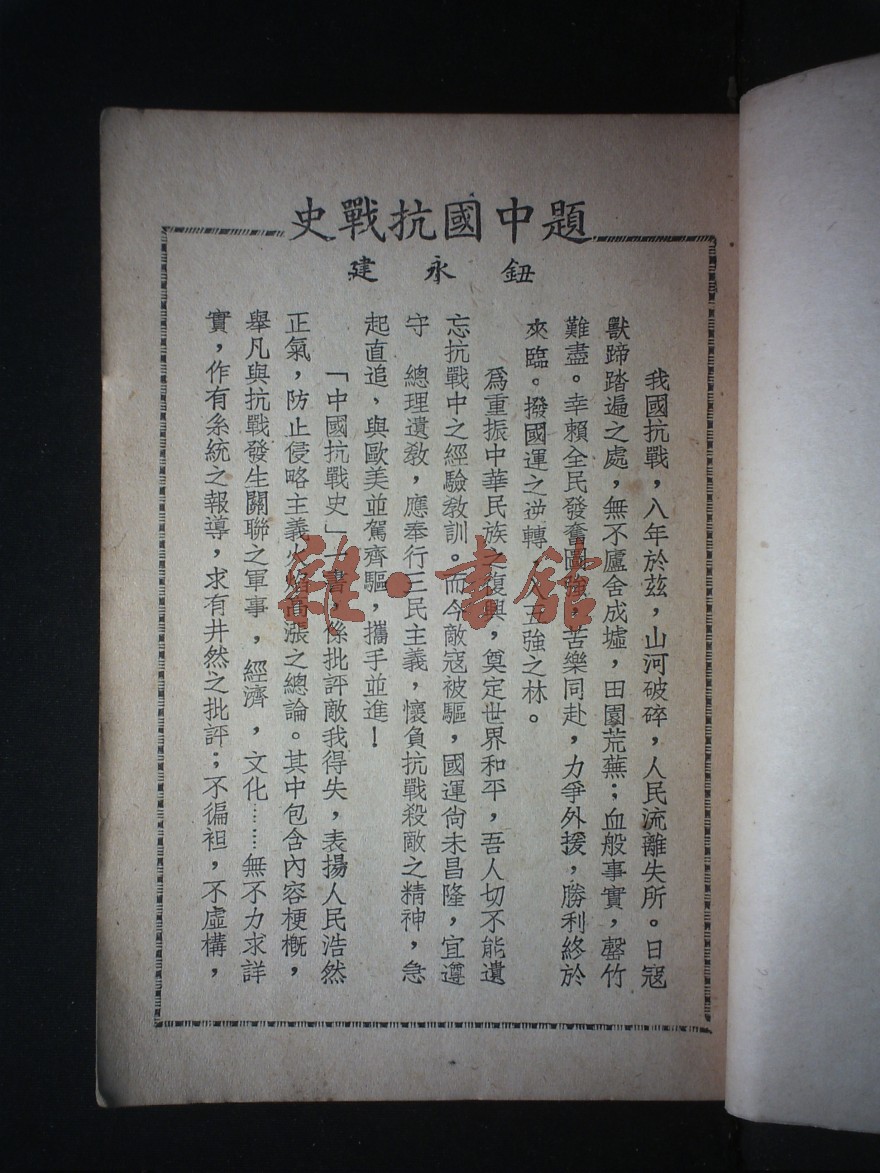 題中國抗戰史
鈕永建
我國抗戰，八年於茲，山河破碎，人民流離失所。日寇
獸蹄踏遍之處，無不廬舍成墟，田園荒蕪；血般事實，罄竹
難盡。幸賴全民發奮圖強，苦樂同赴，力爭外援，勝利終於
來臨。撥國運之逆轉，入五強之林。
爲重振中華民族之復興，奠定世界和平，吾人切不能遺
忘抗戰中之經驗教訓。而今敵寇被驅，國運尙未昌隆，宜遵
守　總理遺教，應奉行三民主義，懷負抗戰殺敵之精神，急
起直追，與歐美並駕齊驅，攜手並進！
「中國抗戰史」一書，係批評敵我得失，表揚人民浩然
正氣，防止侵略主義火焰高漲之總論。其中包含內容梗槪，
舉凡與抗戰發生關聯之軍事，經濟，文化……無不力求詳
實，作有系統之報導，求有井然之批評；不徧袒，不虛構，
雜·書館